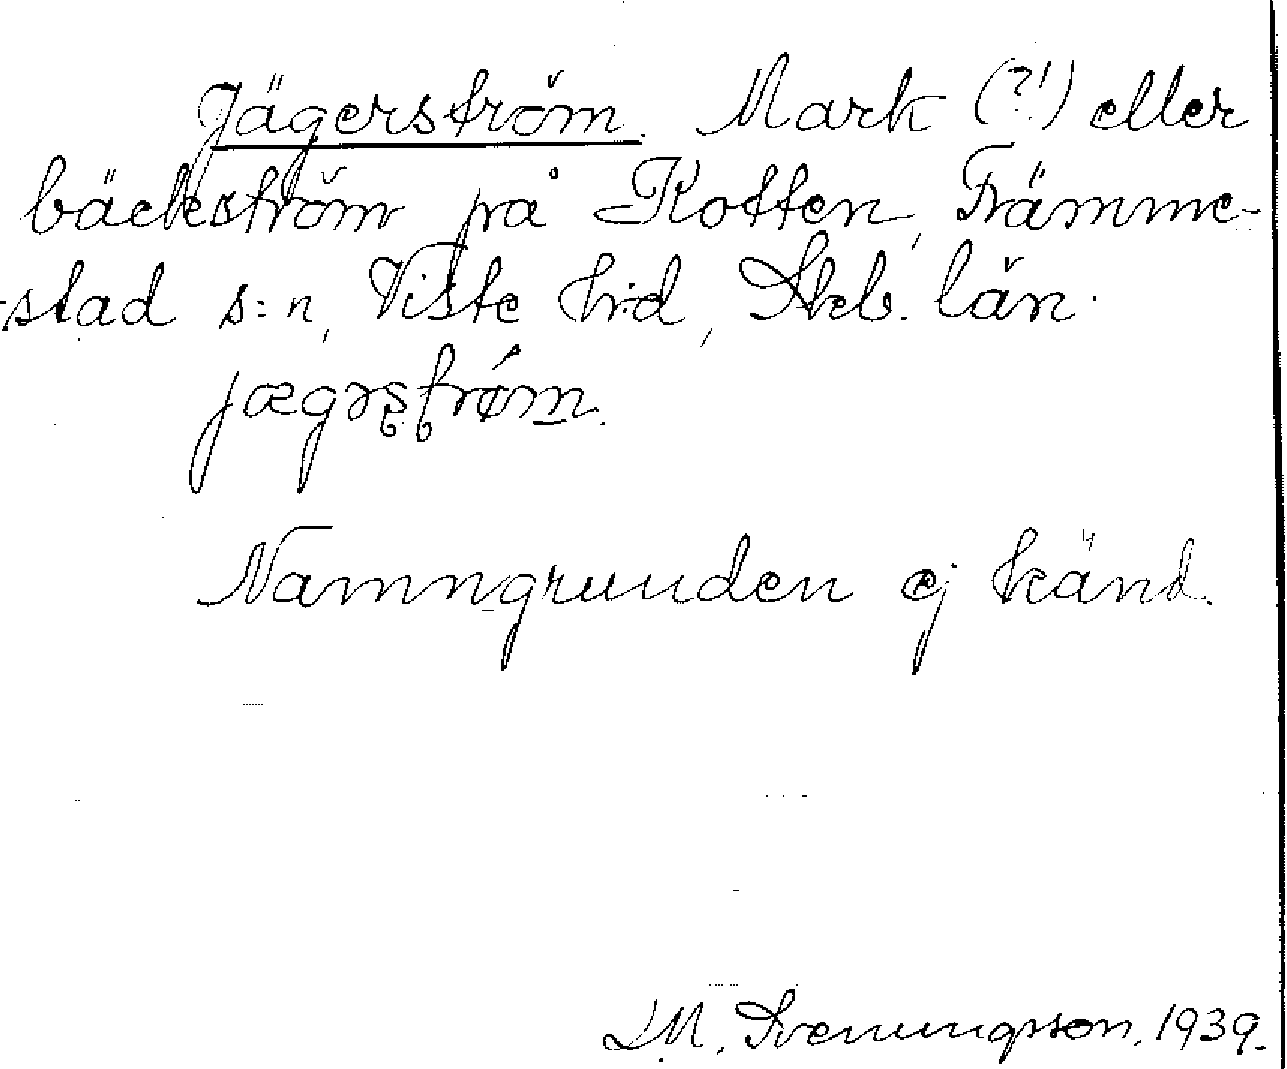 Jägerström. Mark (?!) eller
bäckström på Kotten, Främme-
stad s:n, Viste h:d, Skb. län.
jægəʂʈrøm.
Namngrunden ej känd.
D.M. Svenungsson. 1939.